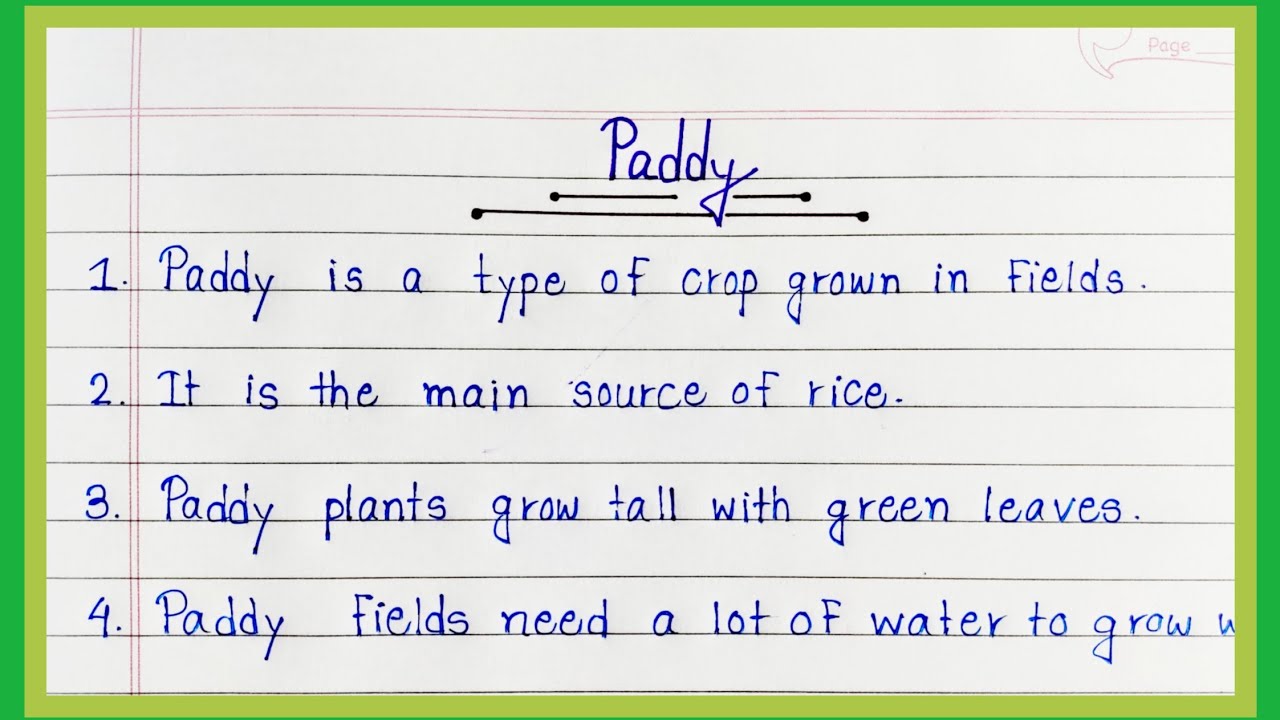 Page
Paddy
1. Paddy is a type of crop grown in fields.
2. It is the main source of rice.
3. Paddy plants grow tall with green leaves.
4. Paddy fields need a lot of water to grow